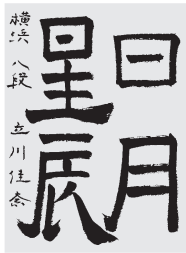 日月
星辰
横浜 八段 立川佳奈